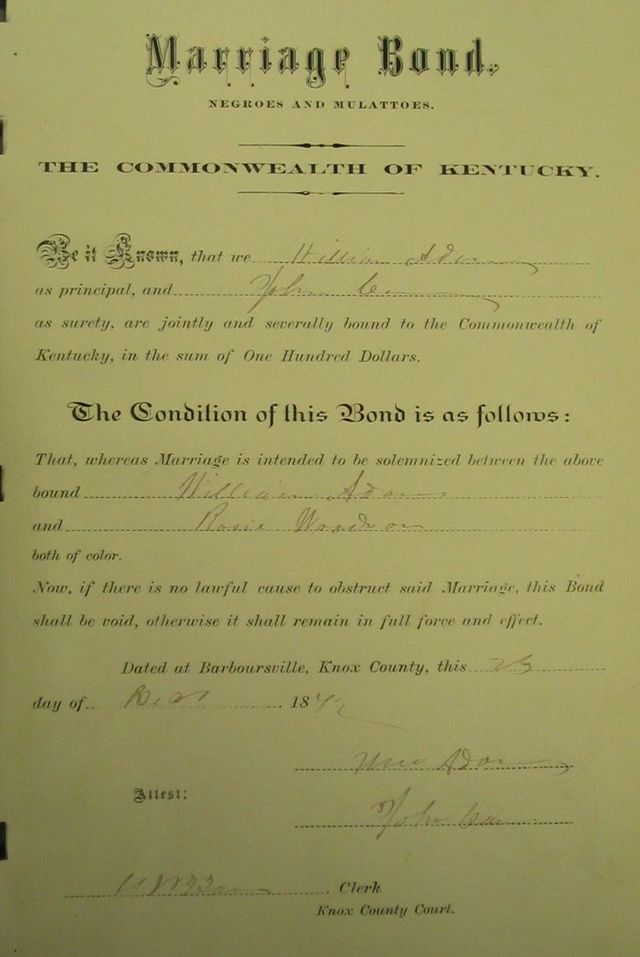 Marriage Bond.
NEGROES AND MULATTOES.
THE COMMONWEALTH OF KENTUCKY.
Be it Known, that we William Adams
as principal, and John
as surety, are jointly and severally bound to the Commonwealth of
Kentucky, in the sum of One Hundred Dollars.
The Condition of this Bond is as follows:
That, whereas Marriage is intended to be solemnized between the above
bound William Adams
and Rosie Woodson
both of color.
Now, if there is no lawful cause to obstruct said Marriage, this Bond
shall be void, otherwise it shall remain in full force and effect.
Dated at Barboursville, Knox County, this
day of 18
Attest:
John
Clerk
Knox County Court.